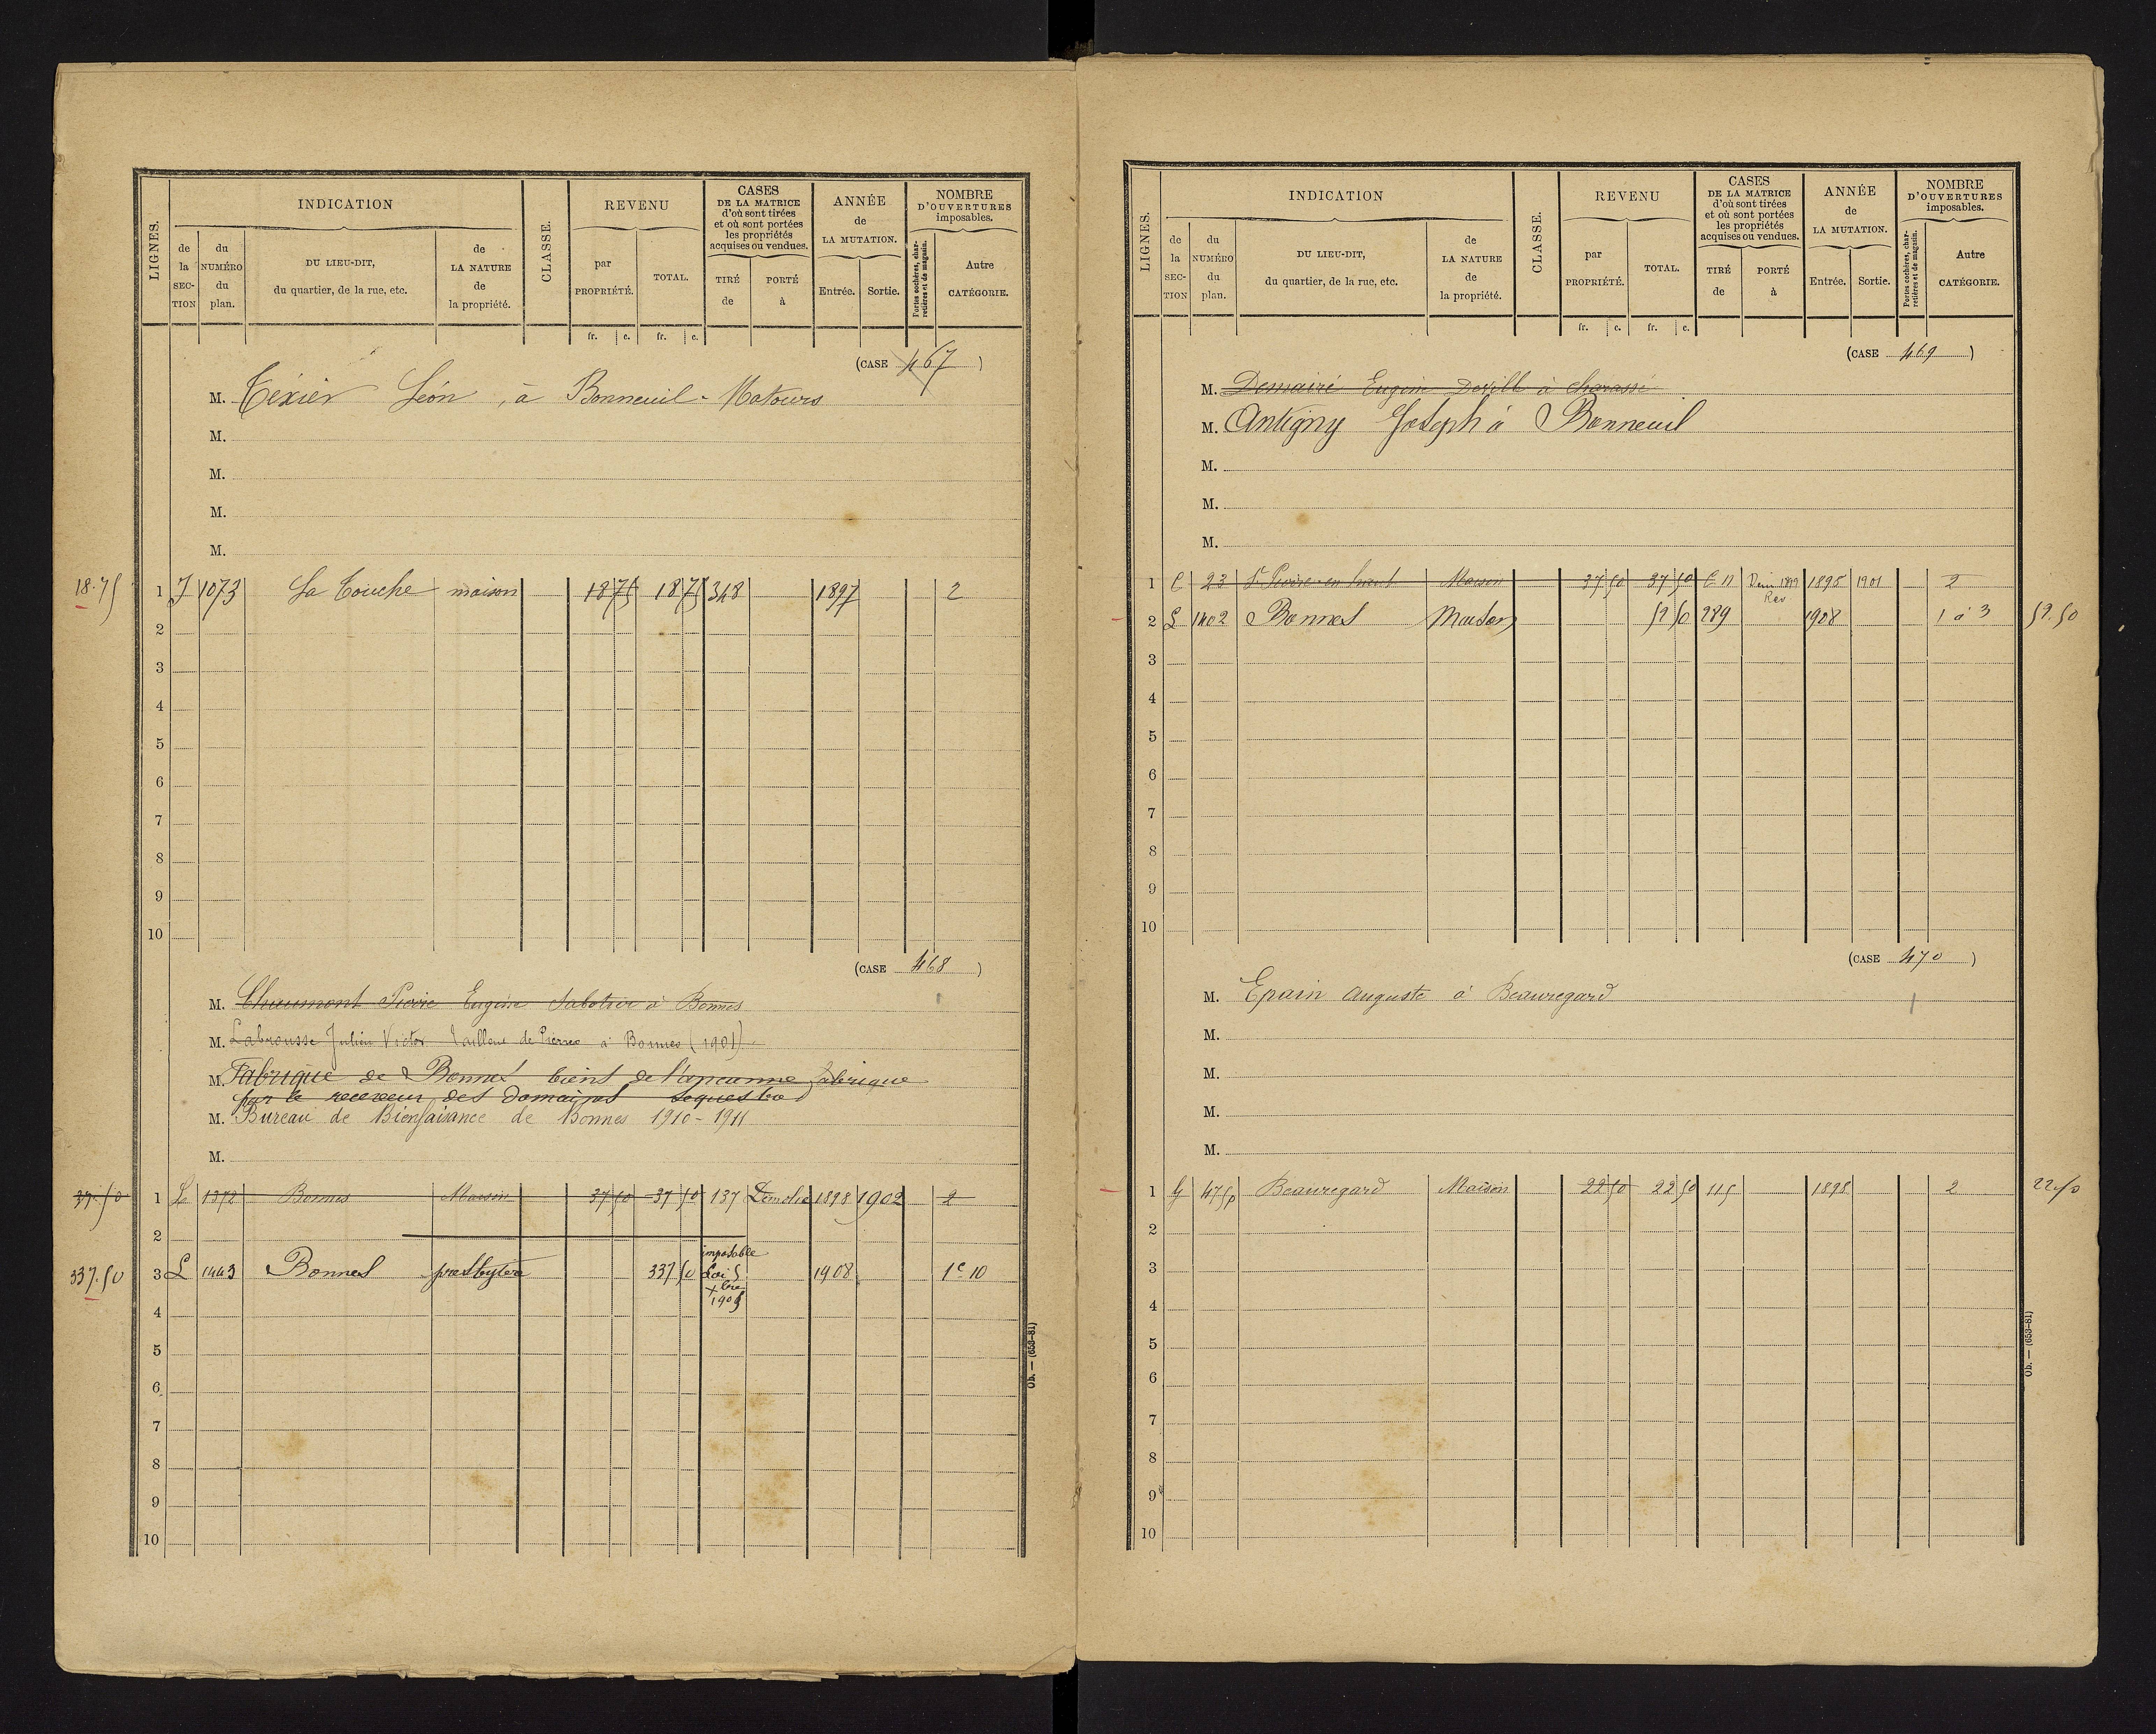 LIGNES.
INDICATION
de la SECTION
du NUMÉRO du plan.
DU LIEU-DIT, du quartier, de la rue, etc.
de LA NATURE de la propriété.
CLASSE.
REVENU
par PROPRIÉTÉ.
TOTAL.
CASES DE LA MATRICE d'où sont tirées et où sont portées les propriétés acquises ou vendues.
TIRÉ de
PORTÉ à
ANNÉE de LA MUTATION.
Entrée.
Sortie.
NOMBRE D'OUVERTURES imposables.
Portes cochères, charretières et de magasin.
Autre CATÉGORIE.
fr. c. fr. c.
(CASE 467)
M. Téxier Léon, à Bonneuil-Matours
M.
M.
M.
M.
18.75 1 J 1073 La Touche maison 18 75 18 75 348 1897 2
2
3
4
5
6
7
8
9
10
(CASE 468)
M. Chaumont Pierre Eugène Sabotier à Bonnes
M. Labrousse Julien Victor Tailleur de Pierres à Bonnes (1901)
M. Fabrique de Bonnes biens de l'ancienne fabrique
par le receveur des Domaines séquestre
M. Bureau de Bienfaisance de Bonnes 1910-1911
M.
37.50 1 L 1372 Bonnes Maison 37 50 37 50 137 Démolie 1898 1902 2
2
337.50 3 L 1443 Bonnes presbytère 337 50 imposable Loi 9 Xbre 1905 1908 1c 10
4
5
6
7
8
9
10
Ob. — (653-81)
LIGNES.
INDICATION
de la SECTION
du NUMÉRO du plan.
DU LIEU-DIT, du quartier, de la rue, etc.
de LA NATURE de la propriété.
CLASSE.
REVENU
par PROPRIÉTÉ.
TOTAL.
CASES DE LA MATRICE d'où sont tirées et où sont portées les propriétés acquises ou vendues.
TIRÉ de
PORTÉ à
ANNÉE de LA MUTATION.
Entrée.
Sortie.
NOMBRE D'OUVERTURES imposables.
Portes cochères, charretières et de magasin.
Autre CATÉGORIE.
fr. c. fr. c.
(CASE 469)
M. Eugène à
M. Antigny Joseph à Bonneuil
M.
M.
M.
1 23 St Pierre en haut Maison 37 50 37 50 1899 1895 1901 2
2 L 1402 Bonnes Maison 52 50 289 1908 1 à 3 52.50
3
4
5
6
7
8
9
10
(CASE 470)
M. Epain Auguste à Beauregard
M.
M.
M.
M.
1 G 475p Beauregard Maison 22 50 22 50 115 1898 2 22.50
2
3
4
5
6
7
8
9
10
Ob. — (653-81)